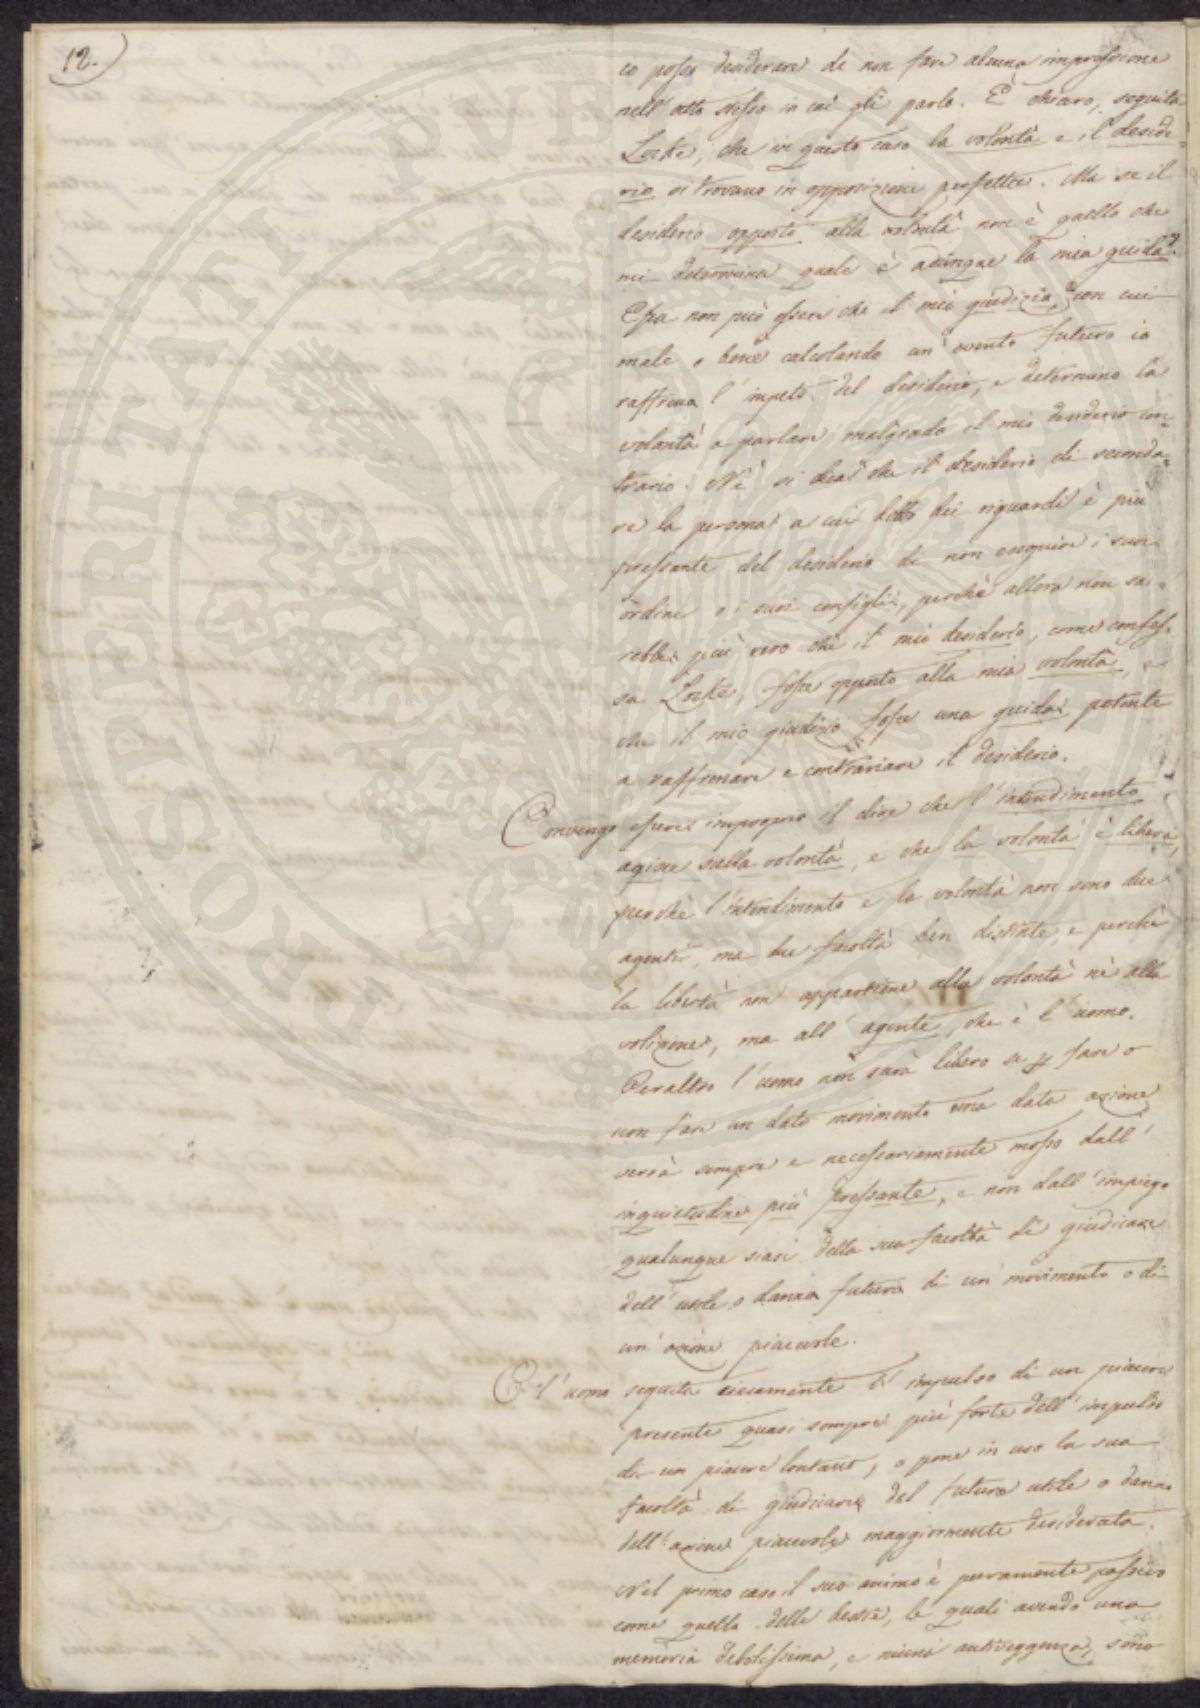 12.
io posso desiderare di non fare alcuna impressione
nell' atto stesso in cui gli parlo. È chiaro, seguita
Locke, che in questo caso la volontà e il deside=
rio si trovano in opposizione perfetta. Ma se il
desiderio opposto alla volontà non è quello che
mi determina quale è adunque la mia guida?
Essa non può essere che il mio giudizio, con cui
male o bene calcolando un' evento futuro io
raffreno l' impeto del desiderio, e determino la
volontà a parlare malgrado il mio desiderio con=
trario. Nè si dica che il desiderio di seconda=
re la persona a cui debbo dei riguardi è più
pressante del desiderio di non eseguire i suoi
ordini o i suoi consigli, perchè allora non sa=
rebbe più vero che il mio desiderio, come confes=
sa Locke, fosse opposto alla mia volontà, e
che il mio giudizio fosse una guida potente
a raffrenare e contrariare il desiderio.
Convengo essere improprio il dire che l' intendimento
agisce sulla volontà, e che la volontà è libera,
perchè l' intendimento e la volontà non sono due
agenti, ma due facoltà ben distinte, e perchè
la libertà non appartiene alla volontà nè alla
volizione, ma all' agente, che è l' uomo.
Peraltro l' uomo non sarà libero se per fare o
non fare un dato movimento una data azione
verrà sempre e necessariamente mosso dall'
inquietudine più pressante, e non dall' impiego
qualunque siasi della sua facoltà di giudicare
dell' utile o danno futuro di un movimento o di
un' azione piacevole.
O l' uomo seguita ciecamente l' impulso di un piacere
presente quasi sempre più forte dell' impulso
di un piacere lontano, o pone in uso la sua
facoltà di giudicare del futuro utile o danno
dell' azione piacevole maggiormente desiderata.
Nel primo caso il suo animo è puramente passivo
come quello delle bestie, le quali avendo una
memoria debolissima, e niuna antiveggenza, sono
PROSPERITATI PUBL